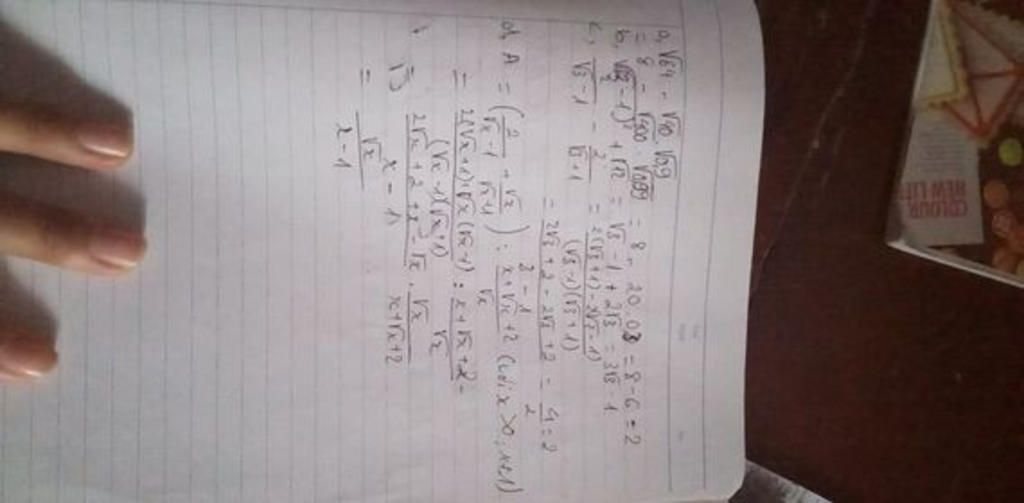 a, √64 - √40.√0,9
= 8 - √400 √0,09 = 8 - 20.0,3 = 8 - 6 = 2
b, √(√3 - 1)² + √12 = √3 - 1 + 2√3 = 3√3 - 1
c, 2/(√3 - 1) - 2/(√3 + 1) = (2(√3 + 1) - 2(√3 - 1))/((√3 - 1)(√3 + 1))
= (2√3 + 2 - 2√3 + 2)/(3 - 1) = 4/2 = 2
d, A = (2/(√x - 1) + √x/(√x + 1)) : (x + √x + 2)/√x (với x > 0, x ≠ 1)
= (2(√x + 1) + √x(√x - 1))/((√x - 1)(√x + 1)) : (x + √x + 2)/√x =
(2√x + 2 + x - √x)/(x - 1) . √x/(x + √x + 2)
= √x/(x - 1)
COLOUR
NEW LIFE